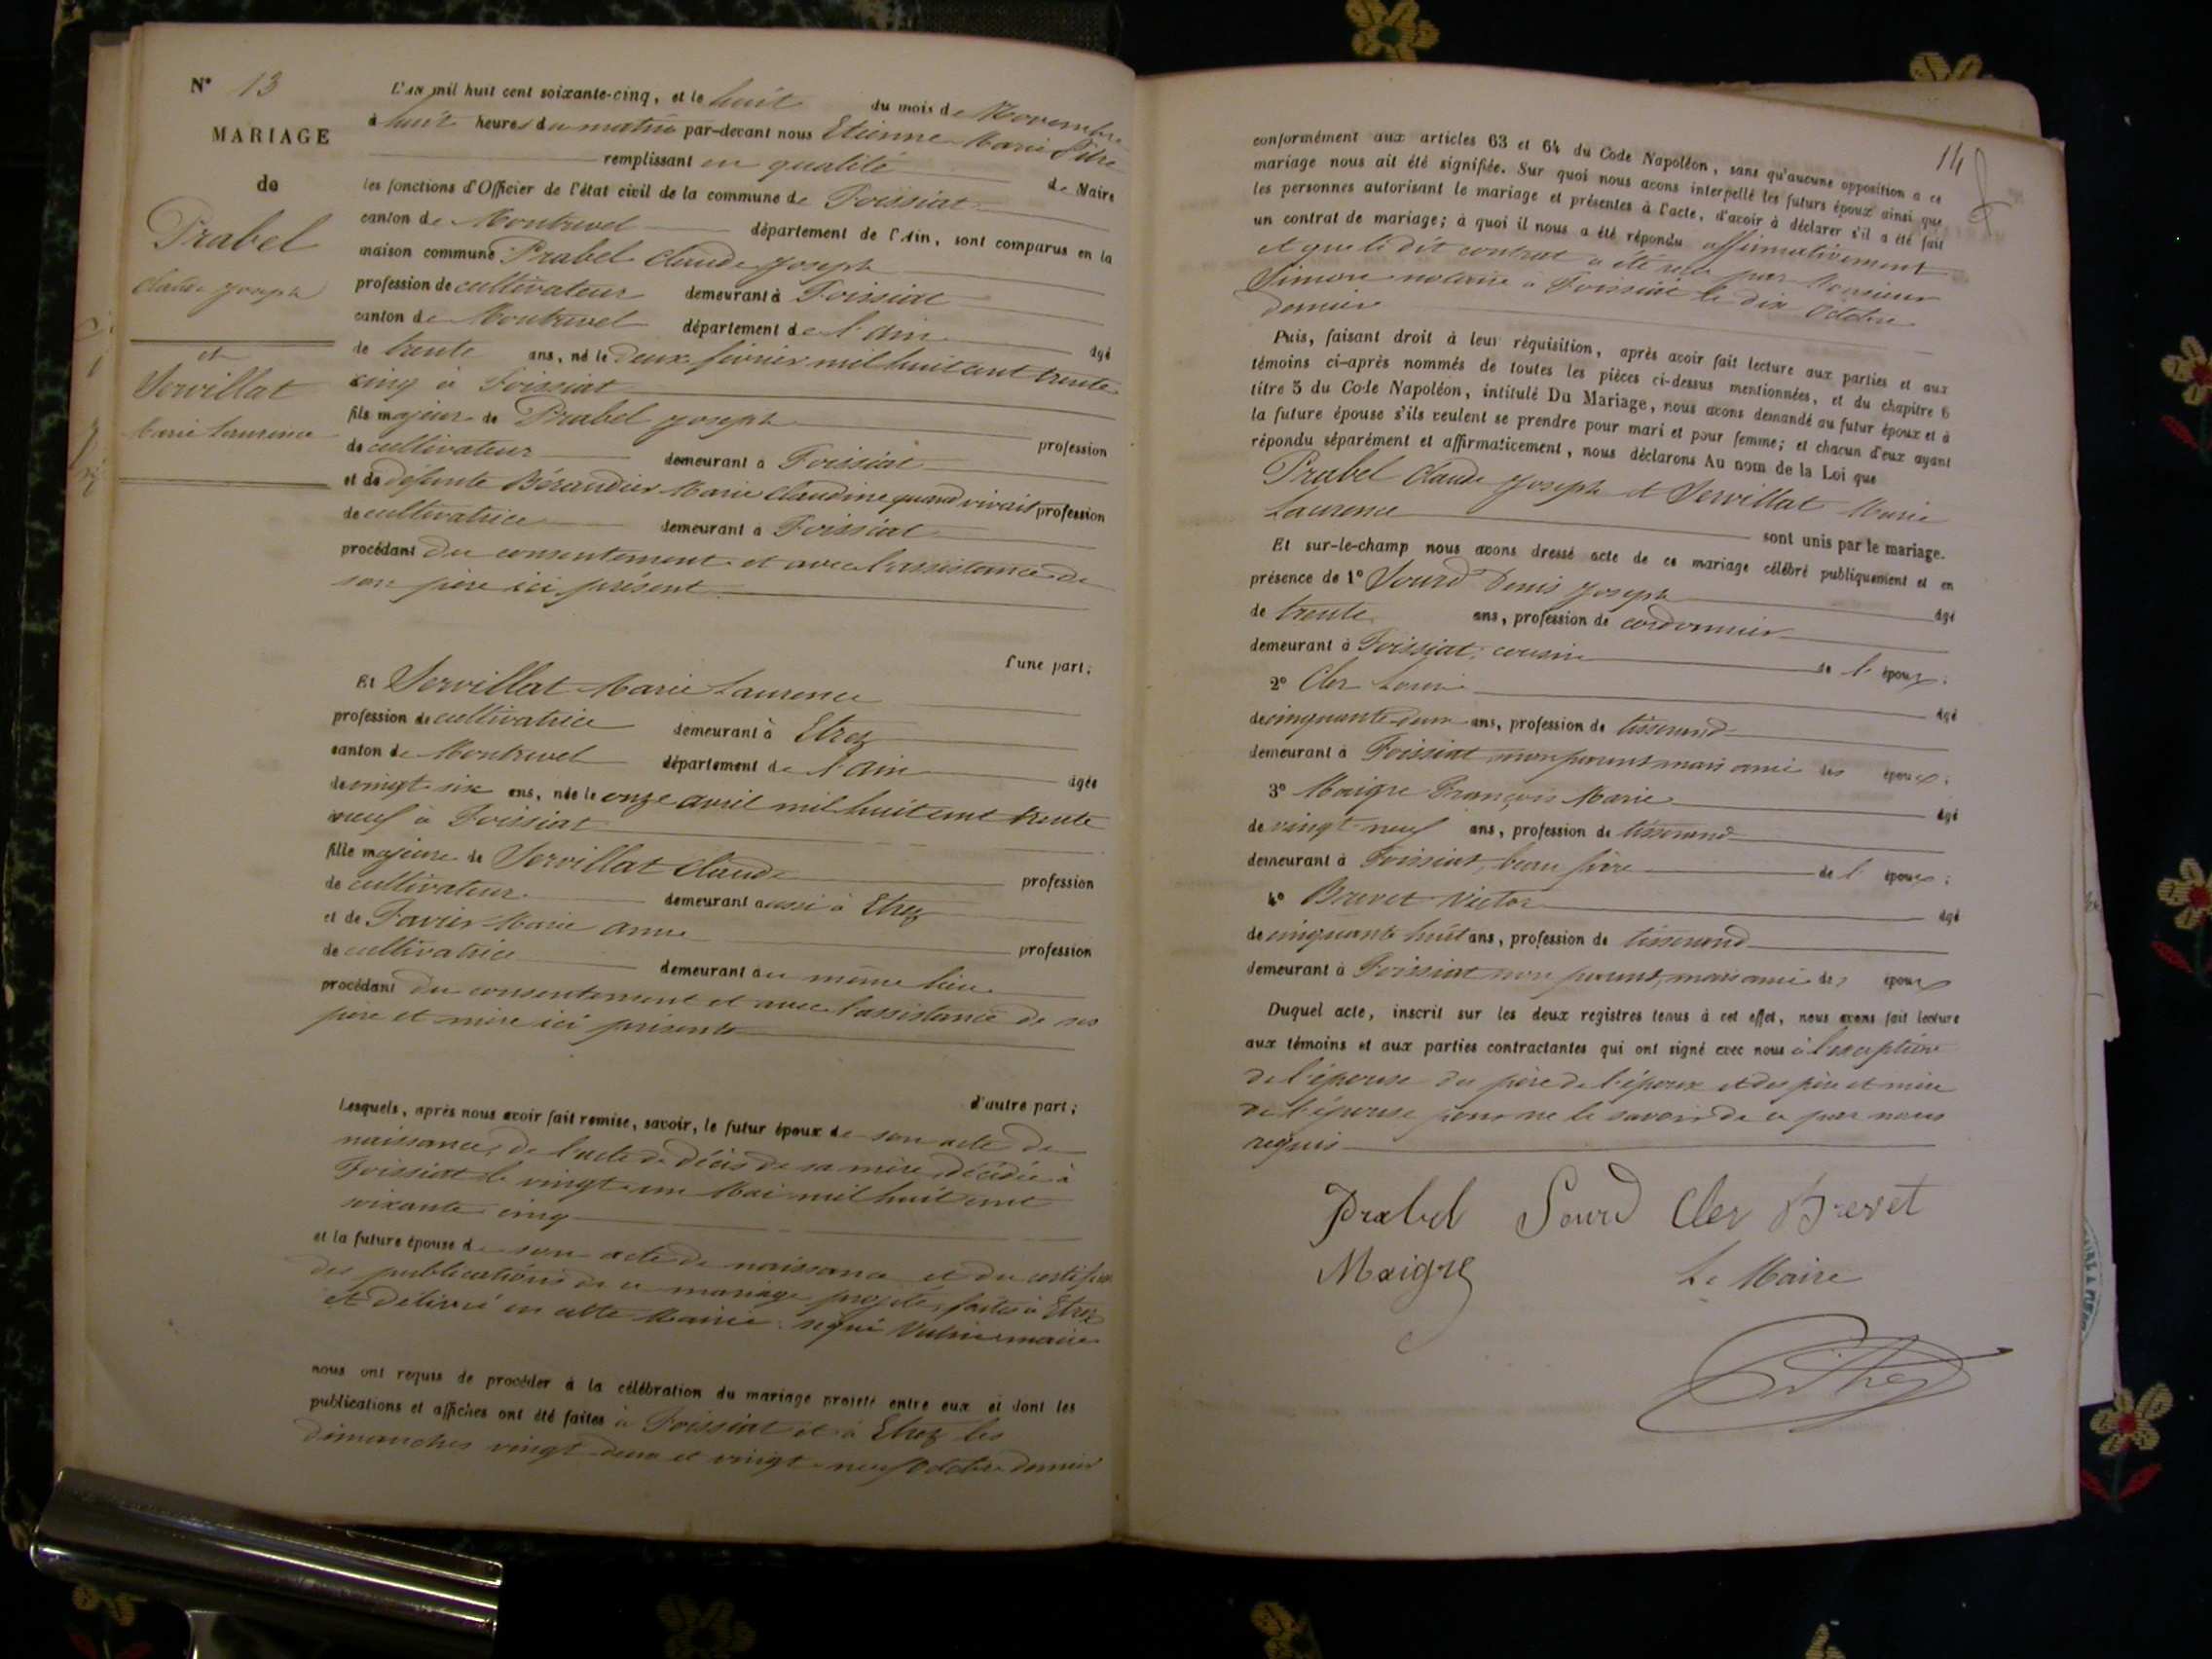 N° 13
MARIAGE
de
Prabel
Claude Joseph
et
Servillat
Marie Laurence
L'an mil huit cent soixante-cinq, et le huit du mois de Novembre
à huit heures du matin par-devant nous Etienne Marie Pitre
remplissant en qualité de Maire
les fonctions d'Officier de l'état civil de la commune de Foissiat
canton de Montrevel département de l'Ain, sont comparus en la
maison commune Prabel Claude Joseph
profession de cultivateur demeurant à Foissiat
canton de Montrevel département de l'ain âgé
de trente ans, né le deux février mil huit cent trente
cinq à Foissiat
fils majeur de Prabel Joseph profession
de cultivateur demeurant à Foissiat
et de défunte Bérandier Marie Claudine quand vivait profession
de cultivatrice demeurant à Foissiat
procédant du consentement et avec l'assistance de
son père ici présent
l'une part;
Et Servillat Marie Laurence
profession de cultivatrice demeurant à Etrez
canton de Montrevel département de l'ain âgée
de vingt six ans, née le onze avril mil huit cent trente
neuf à Foissiat
fille majeure de Servillat Claude profession
de cultivateur demeurant aussi à Etrez
et de Favier Marie Anne profession
de cultivatrice demeurant au même lieu
procédant du consentement et avec l'assistance de ses
père et mère ici présents
d'autre part;
Lesquels, après nous avoir fait remise, savoir, le futur époux de son acte de
naissance, de l'acte de décès de sa mère décédée à
Foissiat le vingt un Mai mil huit cent
soixante cinq
et la future épouse de son acte de naissance et du certificat
des publications de ce mariage projeté, faites à Etrez
et délivré en cette Mairie signé maire
nous ont requis de procéder à la célébration du mariage projeté entre eux et dont les
publications et affiches ont été faites à Foissiat et à Etrez les
dimanches vingt deux et vingt neuf Octobre dernier
14
conformément aux articles 63 et 64 du Code Napoléon, sans qu'aucune opposition a ce
mariage nous ait été signifiée. Sur quoi nous avons interpellé les futurs époux ainsi que
les personnes autorisant le mariage et présentes à l'acte, d'avoir à déclarer s'il a été fait
un contrat de mariage; à quoi il nous a été répondu affirmativement
et que le dit contrat a été reçu par Monsieur
Simon notaire à Foissiat le dix Octobre
dernier
Puis, faisant droit à leur réquisition, après avoir fait lecture aux parties et aux
témoins ci-après nommés de toutes les pièces ci-dessus mentionnées, et du chapitre 6
titre 5 du Code Napoléon, intitulé Du Mariage, nous avons demandé au futur époux et à
la future épouse s'ils veulent se prendre pour mari et pour femme; et chacun d'eux ayant
répondu séparément et affirmativement, nous déclarons Au nom de la Loi que
Prabel Claude Joseph et Servillat Marie
Laurence sont unis par le mariage.
Et sur-le-champ nous avons dressé acte de ce mariage célébré publiquement et en
présence de 1° Sourd Denis Joseph âgé
de trente ans, profession de cordonnier
demeurant à Foissiat, cousin de l'époux;
2° Cler Louis âgé
de cinquante deux ans, profession de tisserand
demeurant à Foissiat non parent mais ami des époux;
3° Maigre François Marie âgé
de vingt neuf ans, profession de tisserand
demeurant à Foissiat, beau frère de l'époux;
4° Brevet Victor âgé
de cinquante huit ans, profession de tisserand
demeurant à Foissiat non parent, mais ami des époux
Duquel acte, inscrit sur les deux registres tenus à cet effet, nous avons fait lecture
aux témoins et aux parties contractantes qui ont signé avec nous à l'exception
de l'épouse du père de l'époux et des père et mère
de l'épouse pour ne le savoir de ce par nous
requis
Prabel Sourd Cler Brevet
Maigre Le Maire
Pitre